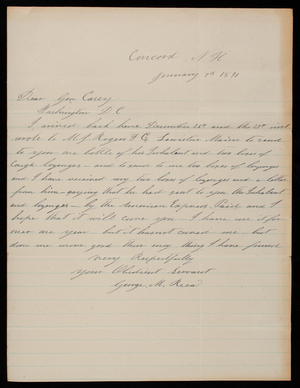 Concord N H
January 1st 1891
Dear Gen Casey
Washington D.C.
I arrived back here December 28th and the 29th inst
wrote to M. J. Rogers & Co Lewiston Maine to send
to you one bottle of his Inhalant and two boxes of
Cough lozenges - and to send to me two boxes of lozenges
and I have received my two boxes of lozenges and a letter
from him - saying that he had sent to you the Inhalant
and lozenges - by the American Express Paid and I
hope that it will cure you - I have used it for
over one year but it has not cured me but
done me more good than any thing I have found
Very Respectfully
Your Obedient Servant
George. M. Read